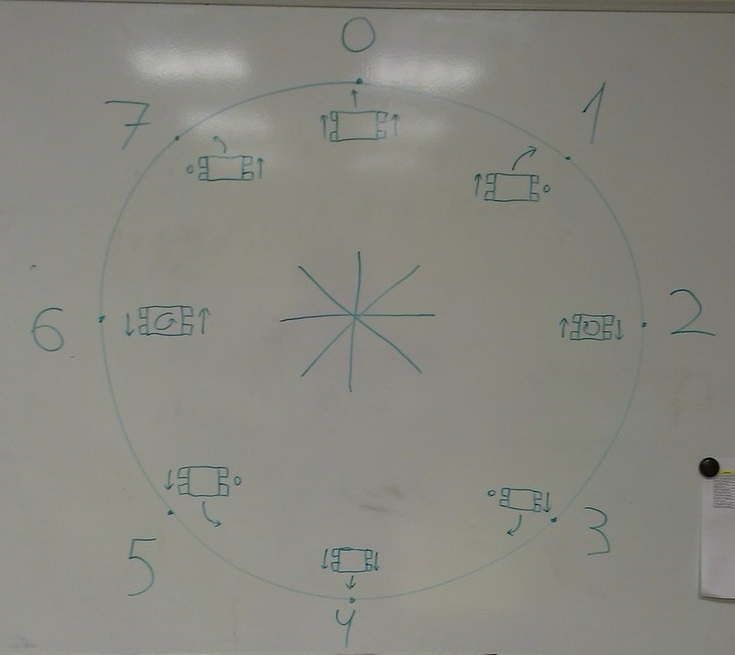 0
1
2
3
4
5
6
7